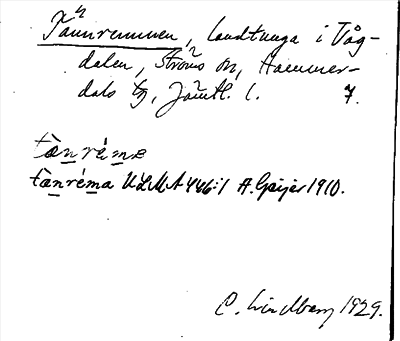 Tännremmen, landtunga i Våg-
dalen, Ströms sn, Hammer-
dals tg, Jämtl. l. 7.
tæ̀nréme
tæ̀nréma ULMA 446:1 A. Geijer 1910.
C. Lindberg 1929.